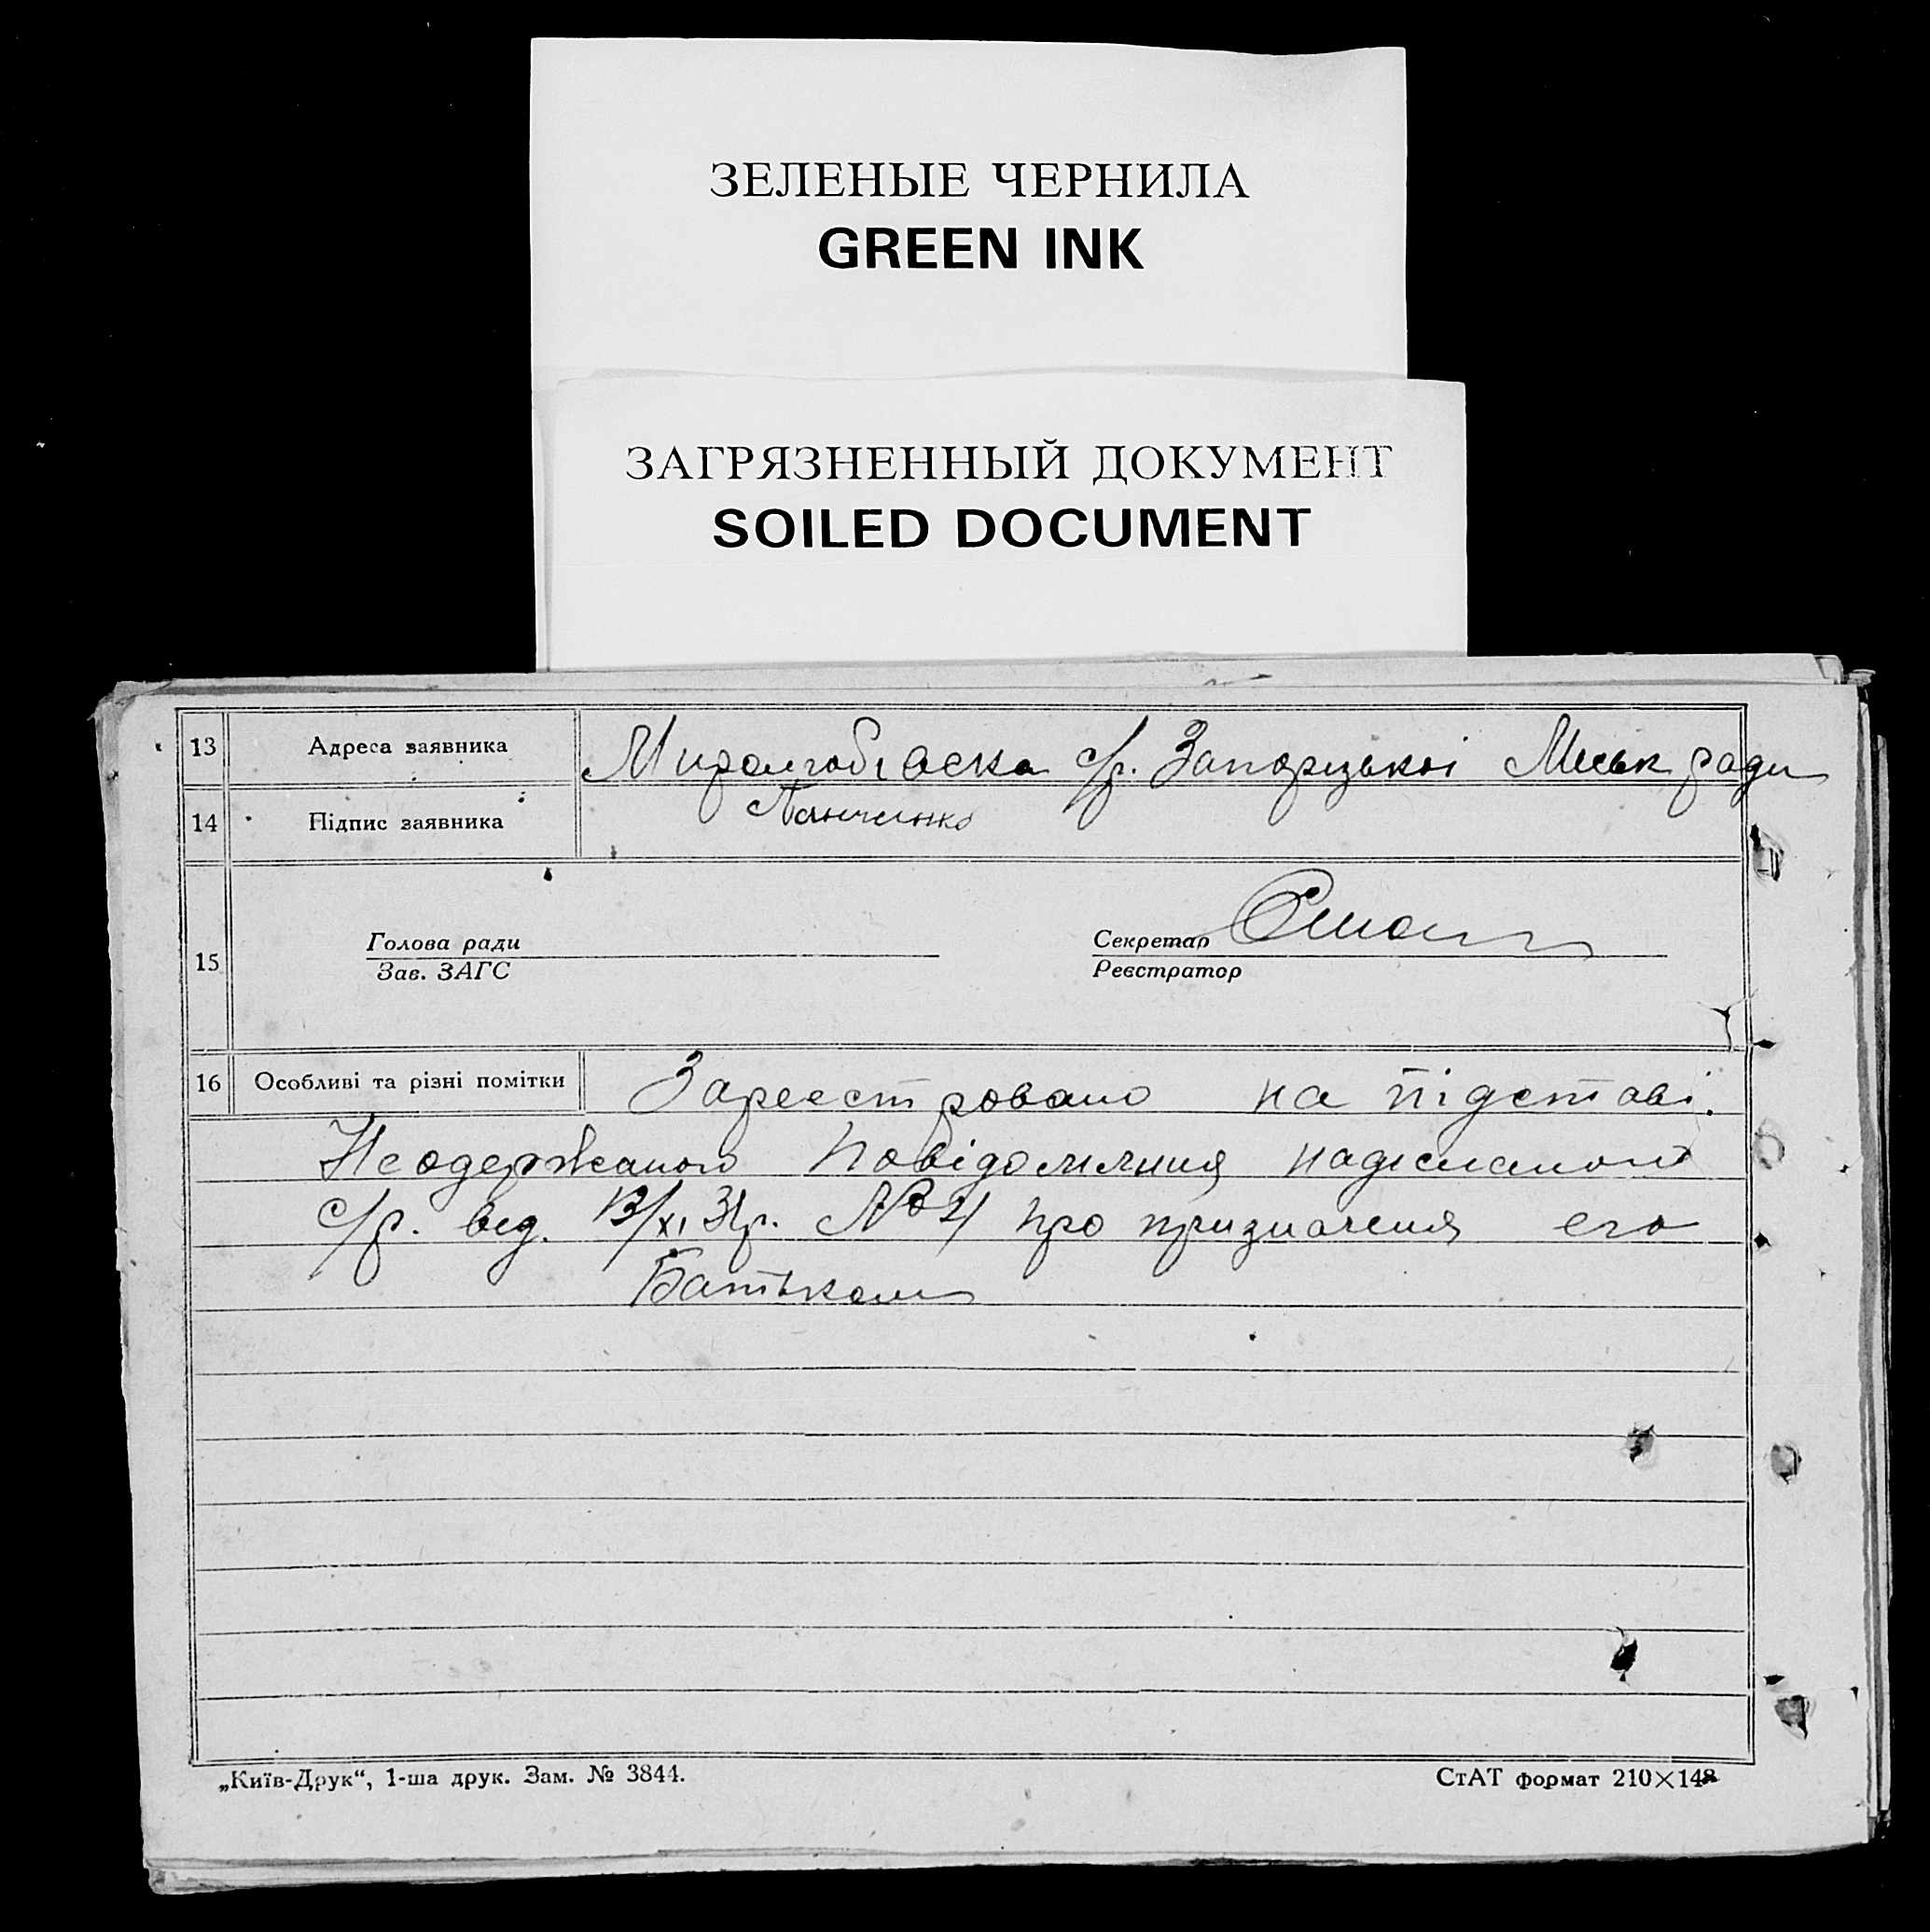 ЗЕЛЕНЫЕ ЧЕРНИЛА
GREEN INK
ЗАГРЯЗНЕННЫЙ ДОКУМЕНТ
SOILED DOCUMENT
13 Адреса заявника с/р. Запорізької Міськ ради
14 Підпис заявника Панченко
15 Голова ради Секретар
Зав. ЗАГС Реєстратор
16 Особливі та різні помітки Зареєстровано на підставі.
Неодержаного Повідомлення надісланого
с/р. від. 13/XI 31р. № 21 про призначення его
Батьком
„Київ-Друк“, 1-ша друк. Зам. № 3844. СтАТ формат 210×148